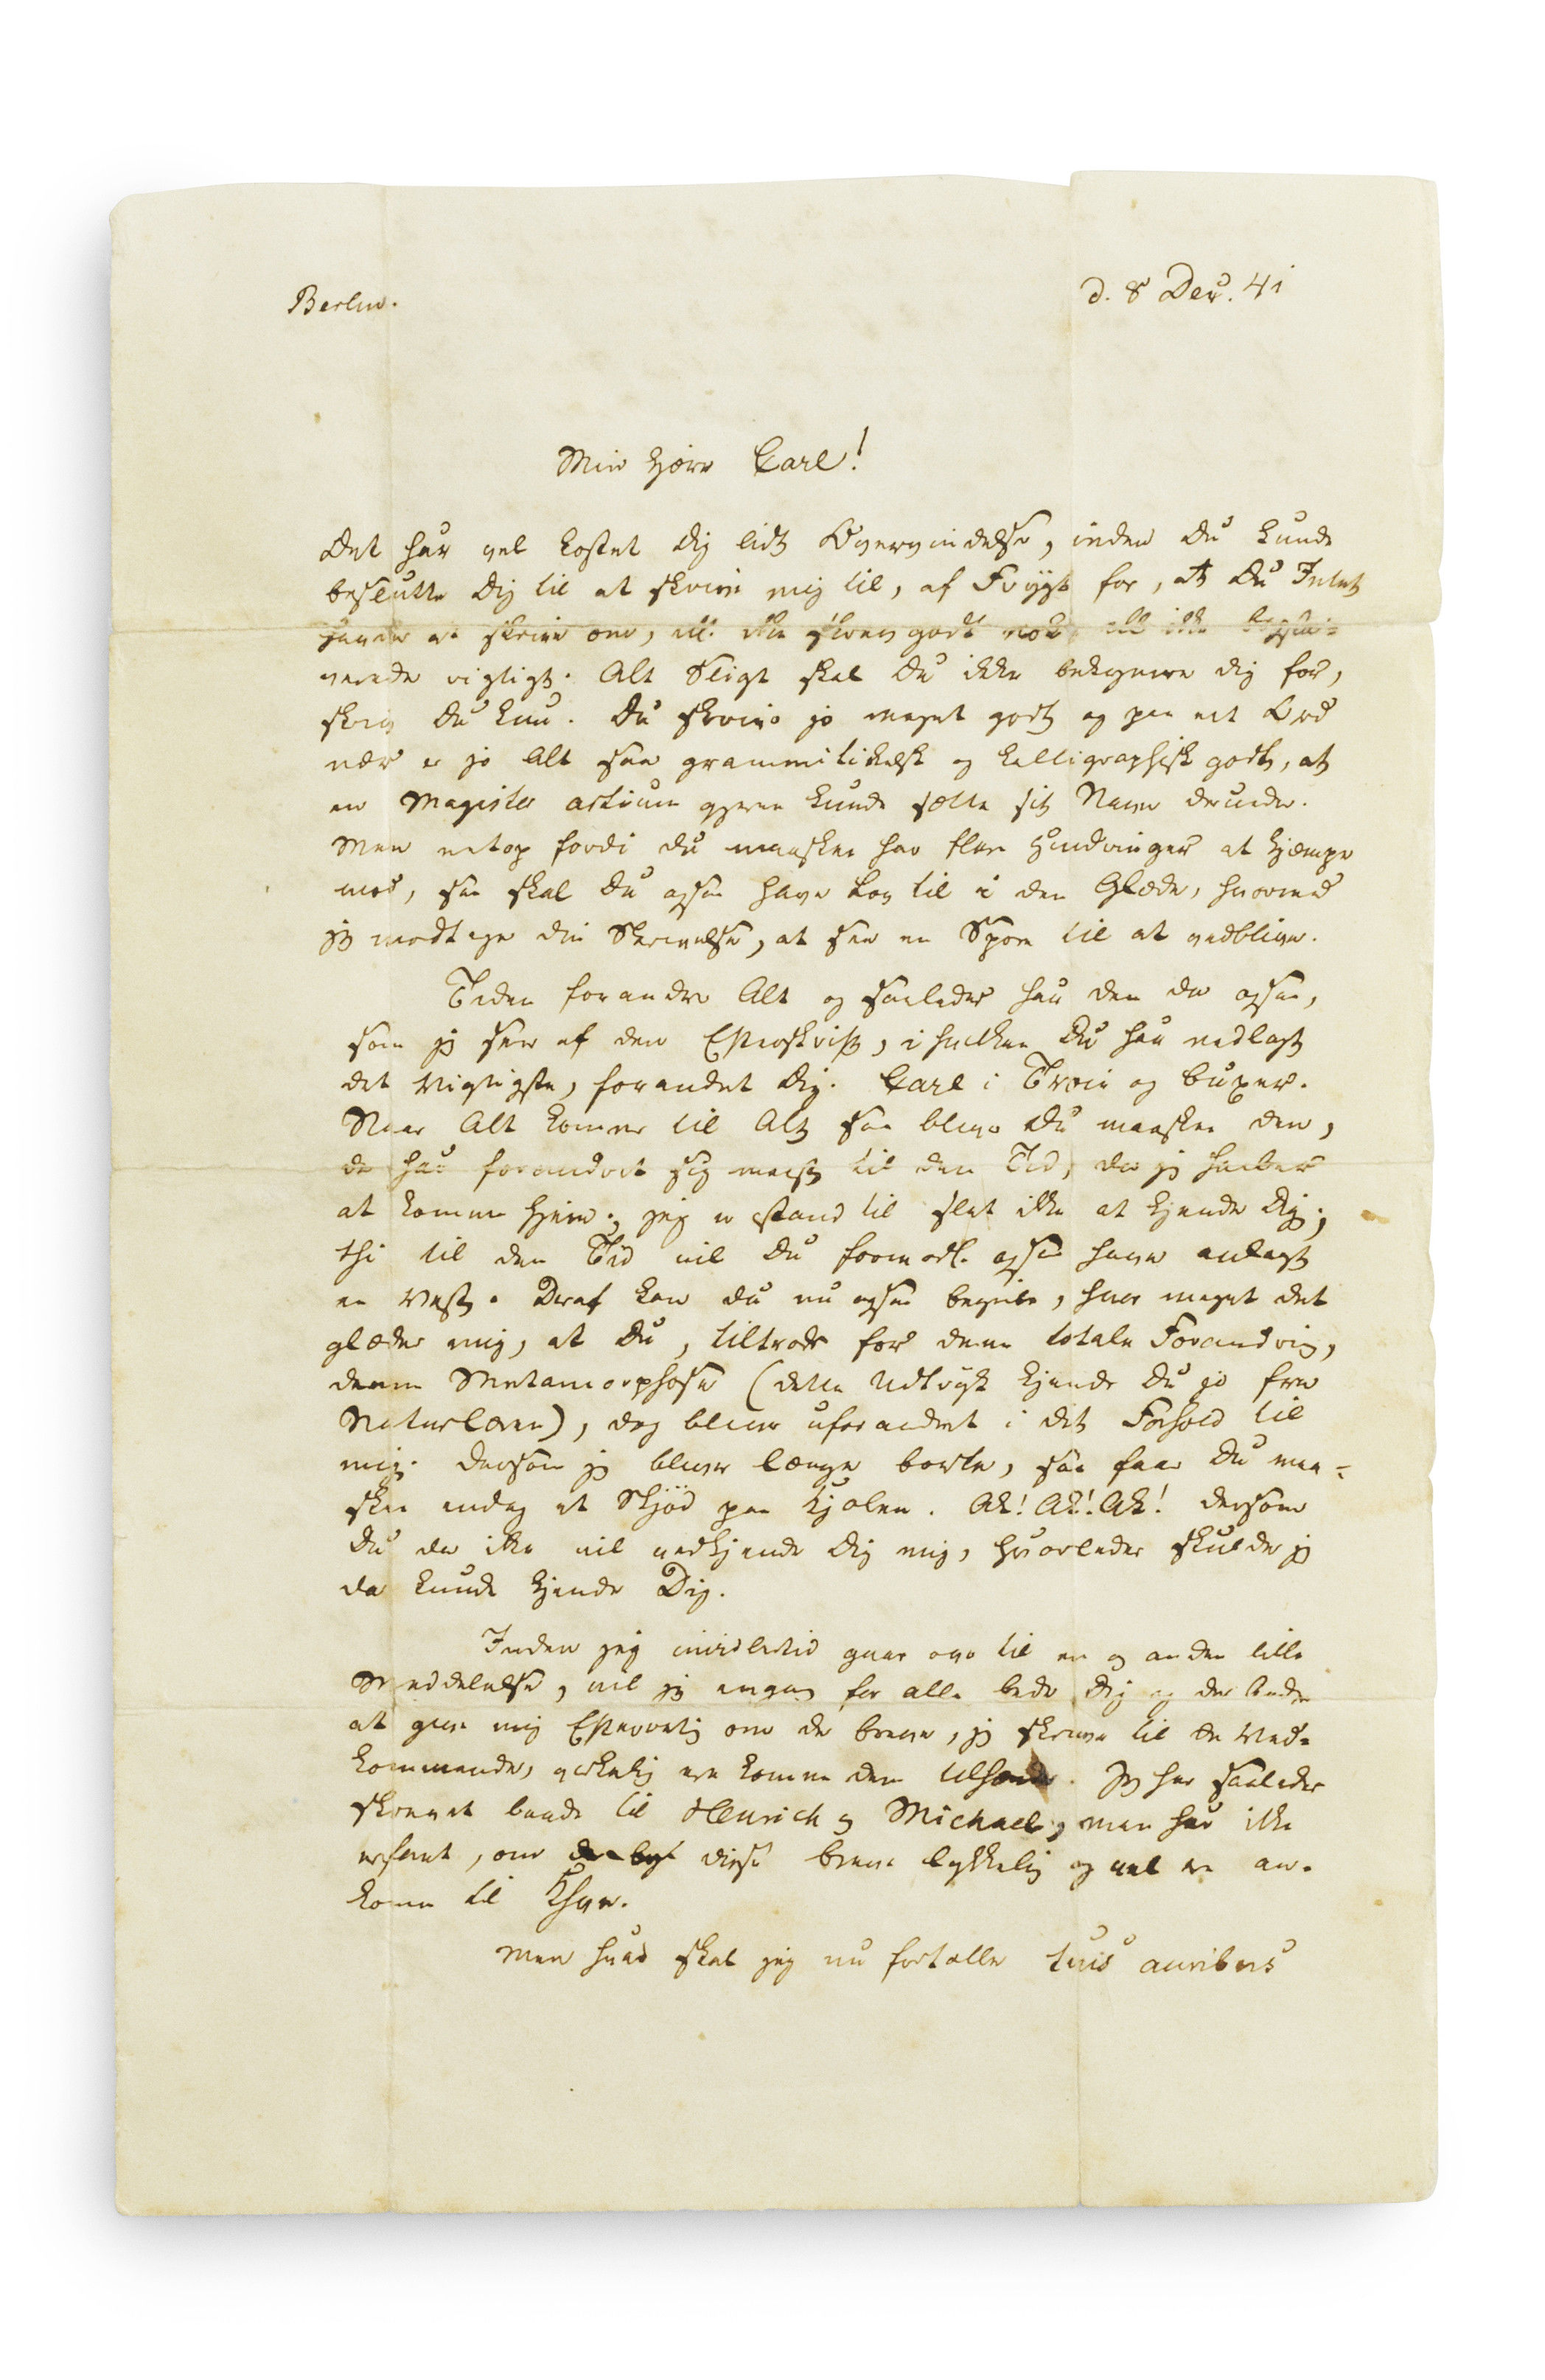 Berlin.
d. 8 Dec. 41
Min kjære Carl!
Det har vel kostet Dig lidt Overvindelse, inden Du kunde
beslutte Dig til at skrive mig til, af Frygt for, at Du Intet
havde at skrive om, ell. ikke skrev godt nok ell ikke
vigtigt. Alt Sligt skal Du ikke bekymre Dig for,
skriv Du kun. Du skriver jo meget godt og paa eet Ord
nær er jo Alt saa grammatikalsk og kalligraphisk godt, at
en Magister artium gjerne kunde sætte sit Navn derunder.
Men netop fordi Du maaskee har flere Hindringer at kjæmpe
mod, saa skal Du ogsaa have Lov til i den Glæde, hvormed
jeg modtager din Skrivelse, at see en Spore til at vedblive.
Tiden forandrer Alt og saaledes har den da ogsaa,
som jeg seer af den Efterskrift, i hvilken Du har nedlagt
det Vigtigste, forandret Dig. Carl i Trøie og Buxer.
Naar Alt kommer til Alt saa bliver Du maaskee den,
der har forandret sig meest til den Tid, da jeg haaber
at komme hjem; jeg er istand til slet ikke at kjende Dig;
thi til den Tid vil Du formodl. ogsaa have anlagt
en Vest. Deraf kan Du nu ogsaa begribe, hvor meget det
glæder mig, at Du, tiltrods for denne totale Forandring,
denne Metamorphose (dette Udtryk kjender Du jo fra
Naturlæren), dog bliver uforandret i dit Forhold til
mig. Dersom jeg bliver længe borte, saa faaer Du maa=
skee endog et Skjød paa Kjolen. Ak! Ak! Ak! dersom
Du da ikke vil vedkjende Dig mig, hvorledes skulde jeg
da kunde kjende Dig.
Inden jeg imidlertid gaaer over til en og anden lille
Meddelelse, vil jeg engang for alle bede Dig og de Andre
at give mig Efterretning om de Breve, jeg skriver til de Ved=
kommende, virkelig ere komne dem tilhænde. Jeg har saaledes
skrevet baade til Henrich og Michael, men har ikke
erfaret, om disse Breve lykkelig og vel ere an=
komne til Khvn.
Men hvad skal jeg nu fortælle tuis auribus